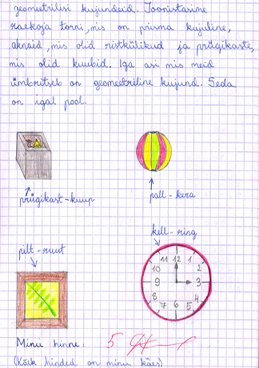 geomeetrilisi kujundeid. Joonistasime
raekoja torni, mis on prisma kujuline,
aknaid, mis olid ristkülikud ja prügikaste,
mis olid kuubid. Iga asi mis meid
ümbritseb on geomeetriline kujund. Seda
on igal pool.
prügikast-kuup
pall-kera
kell-ring
pilt-ruut
12
11
1
10
2
9
3
8
4
7
6
5
Minu hinne: 5
(Kõik hinded on minu käes)